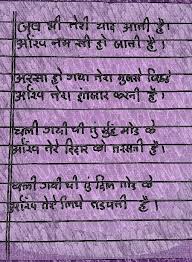 जब भी तेरी याद आती है।
आँख नम सी हो जाती है।
अरसा हो गया तेरा मुजसे बिछडे
आँख तेरा इंतजार करती है।
चली गयी थी तुं मुंह मोड के
आँख तेरे दिदार को तरसती है।
चली गयी थी तुं दिल तोड के
आँख तेरे लिये तडपती है।